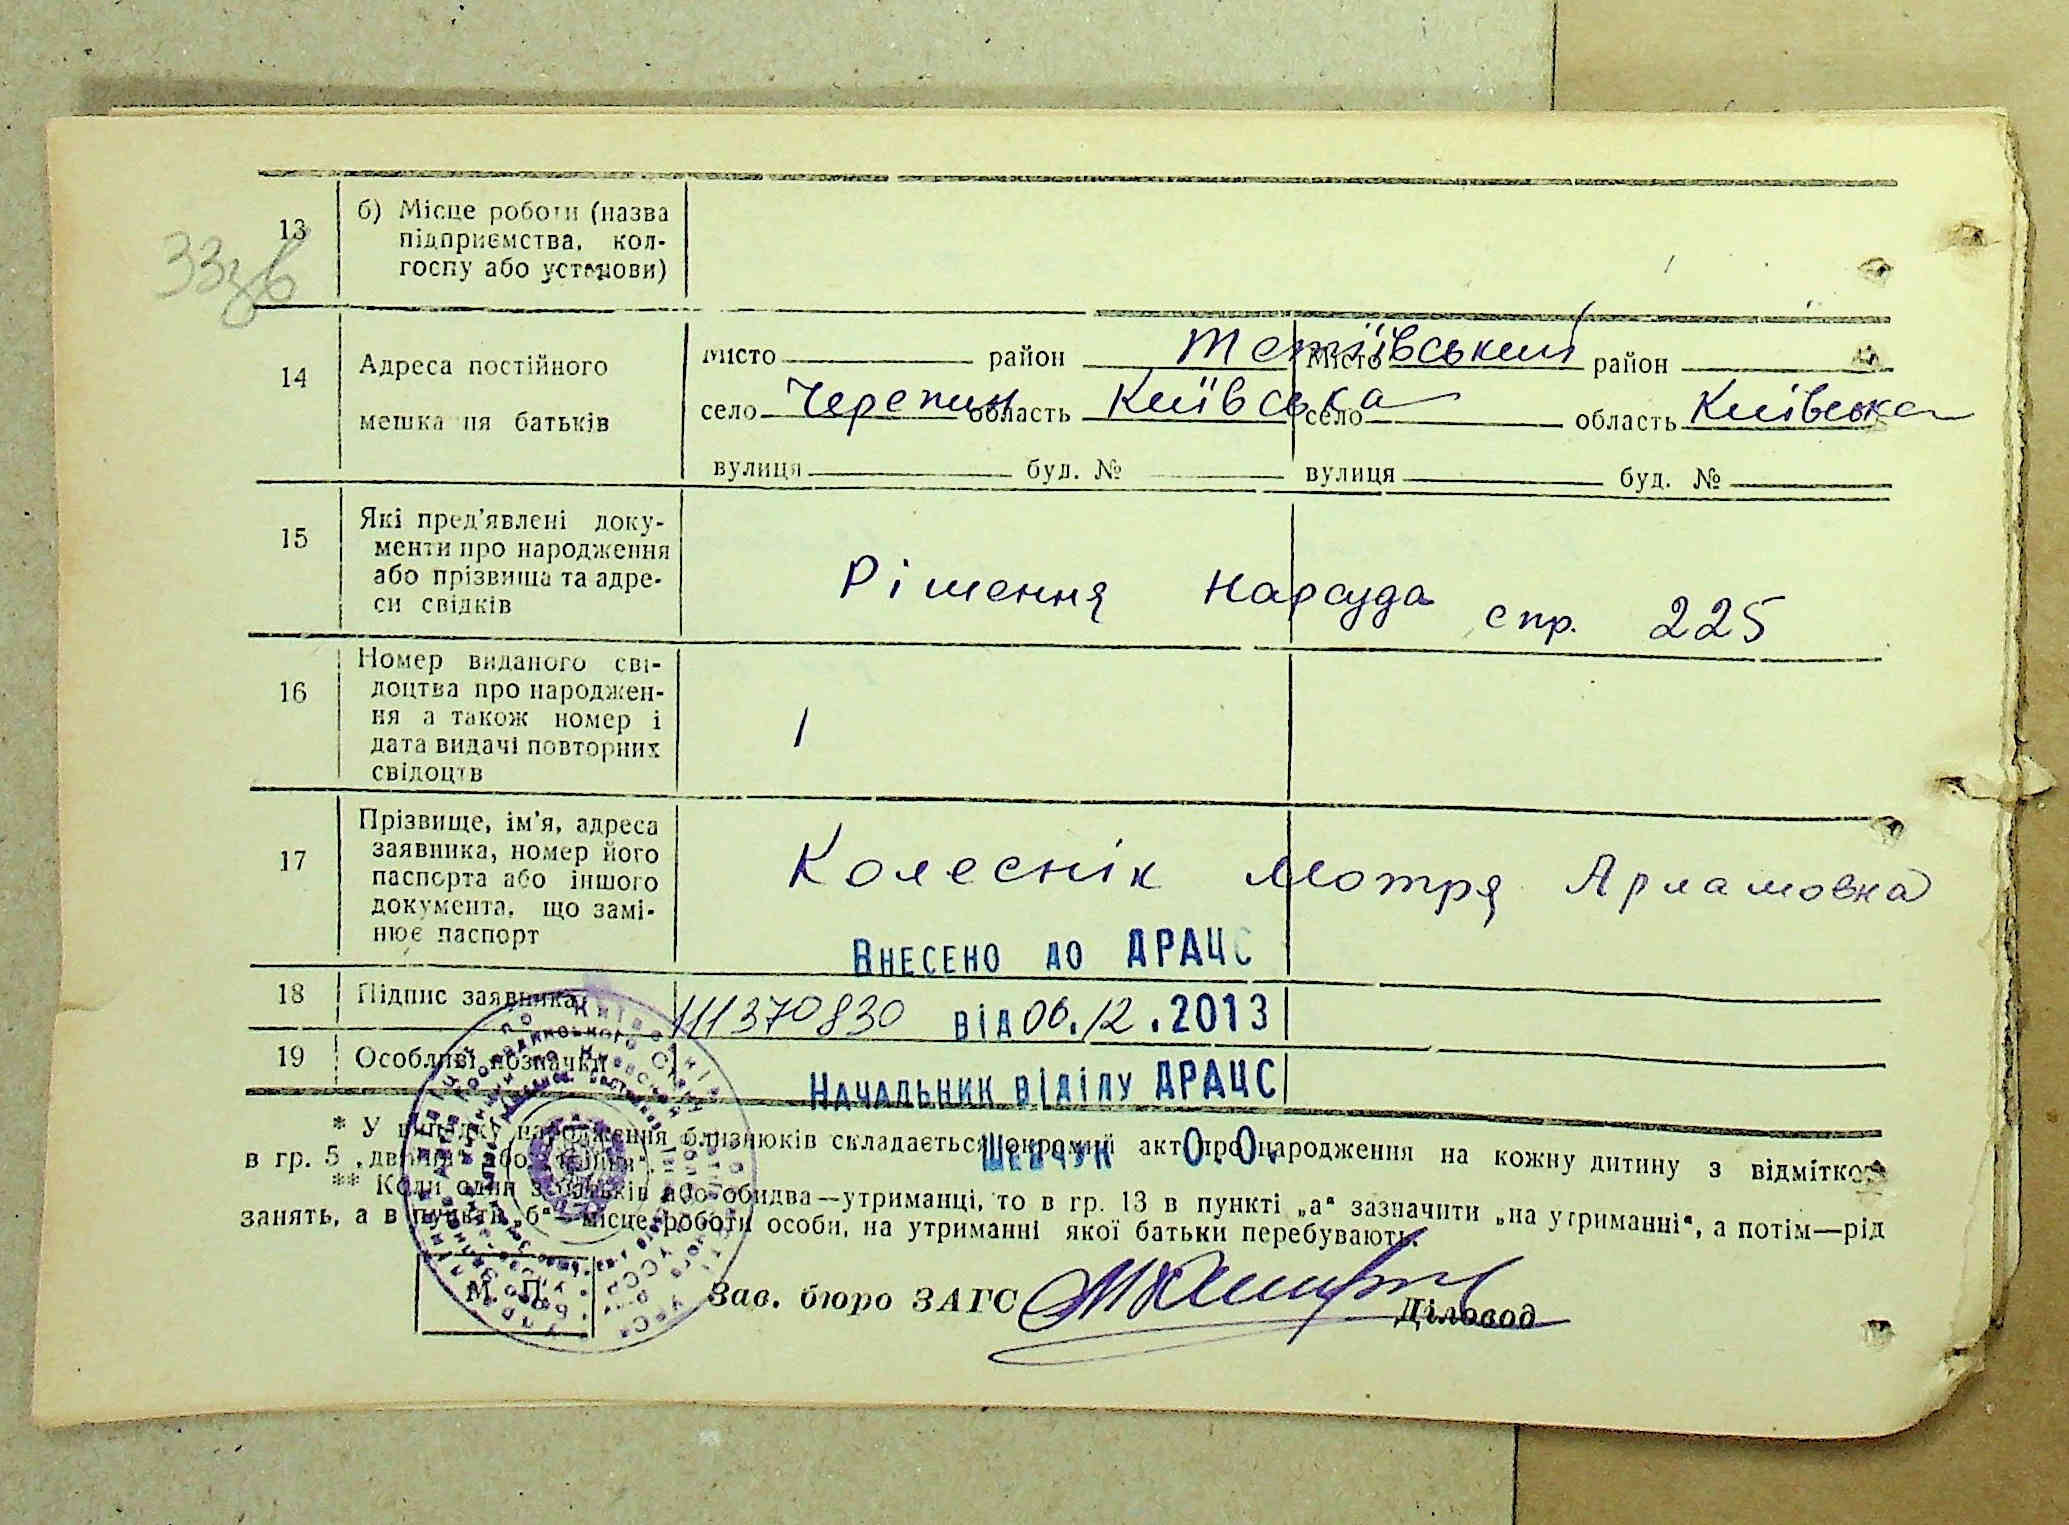 33зв
13 б) Місце роботи (назва
підприємства, кол-
госпу або установи)
14 Адреса постійного
мешкання батьків
місто район Тетіївський місто район
село Черепин область Київська село область Київська
вулиця буд. № вулиця буд. №
15 Які пред'явлені доку-
менти про народження
або прізвища та адре-
си свідків
Рішення нарсуда спр. 225
16 Номер виданого сві-
доцтва про народжен-
ня а також номер і
дата видачі повторних
свідоцтв
17 Прізвище, ім'я, адреса
заявника, номер його
паспорта або іншого
документа, що замі-
нює паспорт
Колеснік Мотря Арламовна
Внесено до ДРАЦС
18 Підпис заявника
111370830 від 06.12.2013
19 Особливі позначки
Начальник відділу ДРАЦС
Шевчук О.О.
* У випадку народження близнюків складається окремий акт про народження на кожну дитину з відміткою
в гр. 5 „двійня“ або „трійня“.
** Коли один з батьків або обидва—утриманці, то в гр. 13 в пункті „а“ зазначити „на утриманні“, а потім—рід
занять, а в пункті „б“—місце роботи особи, на утриманні якої батьки перебувають.
М. П.
Зав. бюро ЗАГС Діловод